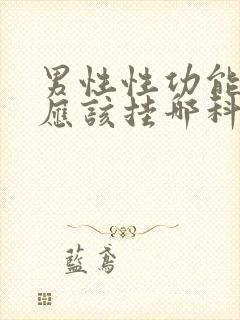 男性性功能
應該挂哪科
藍鳶